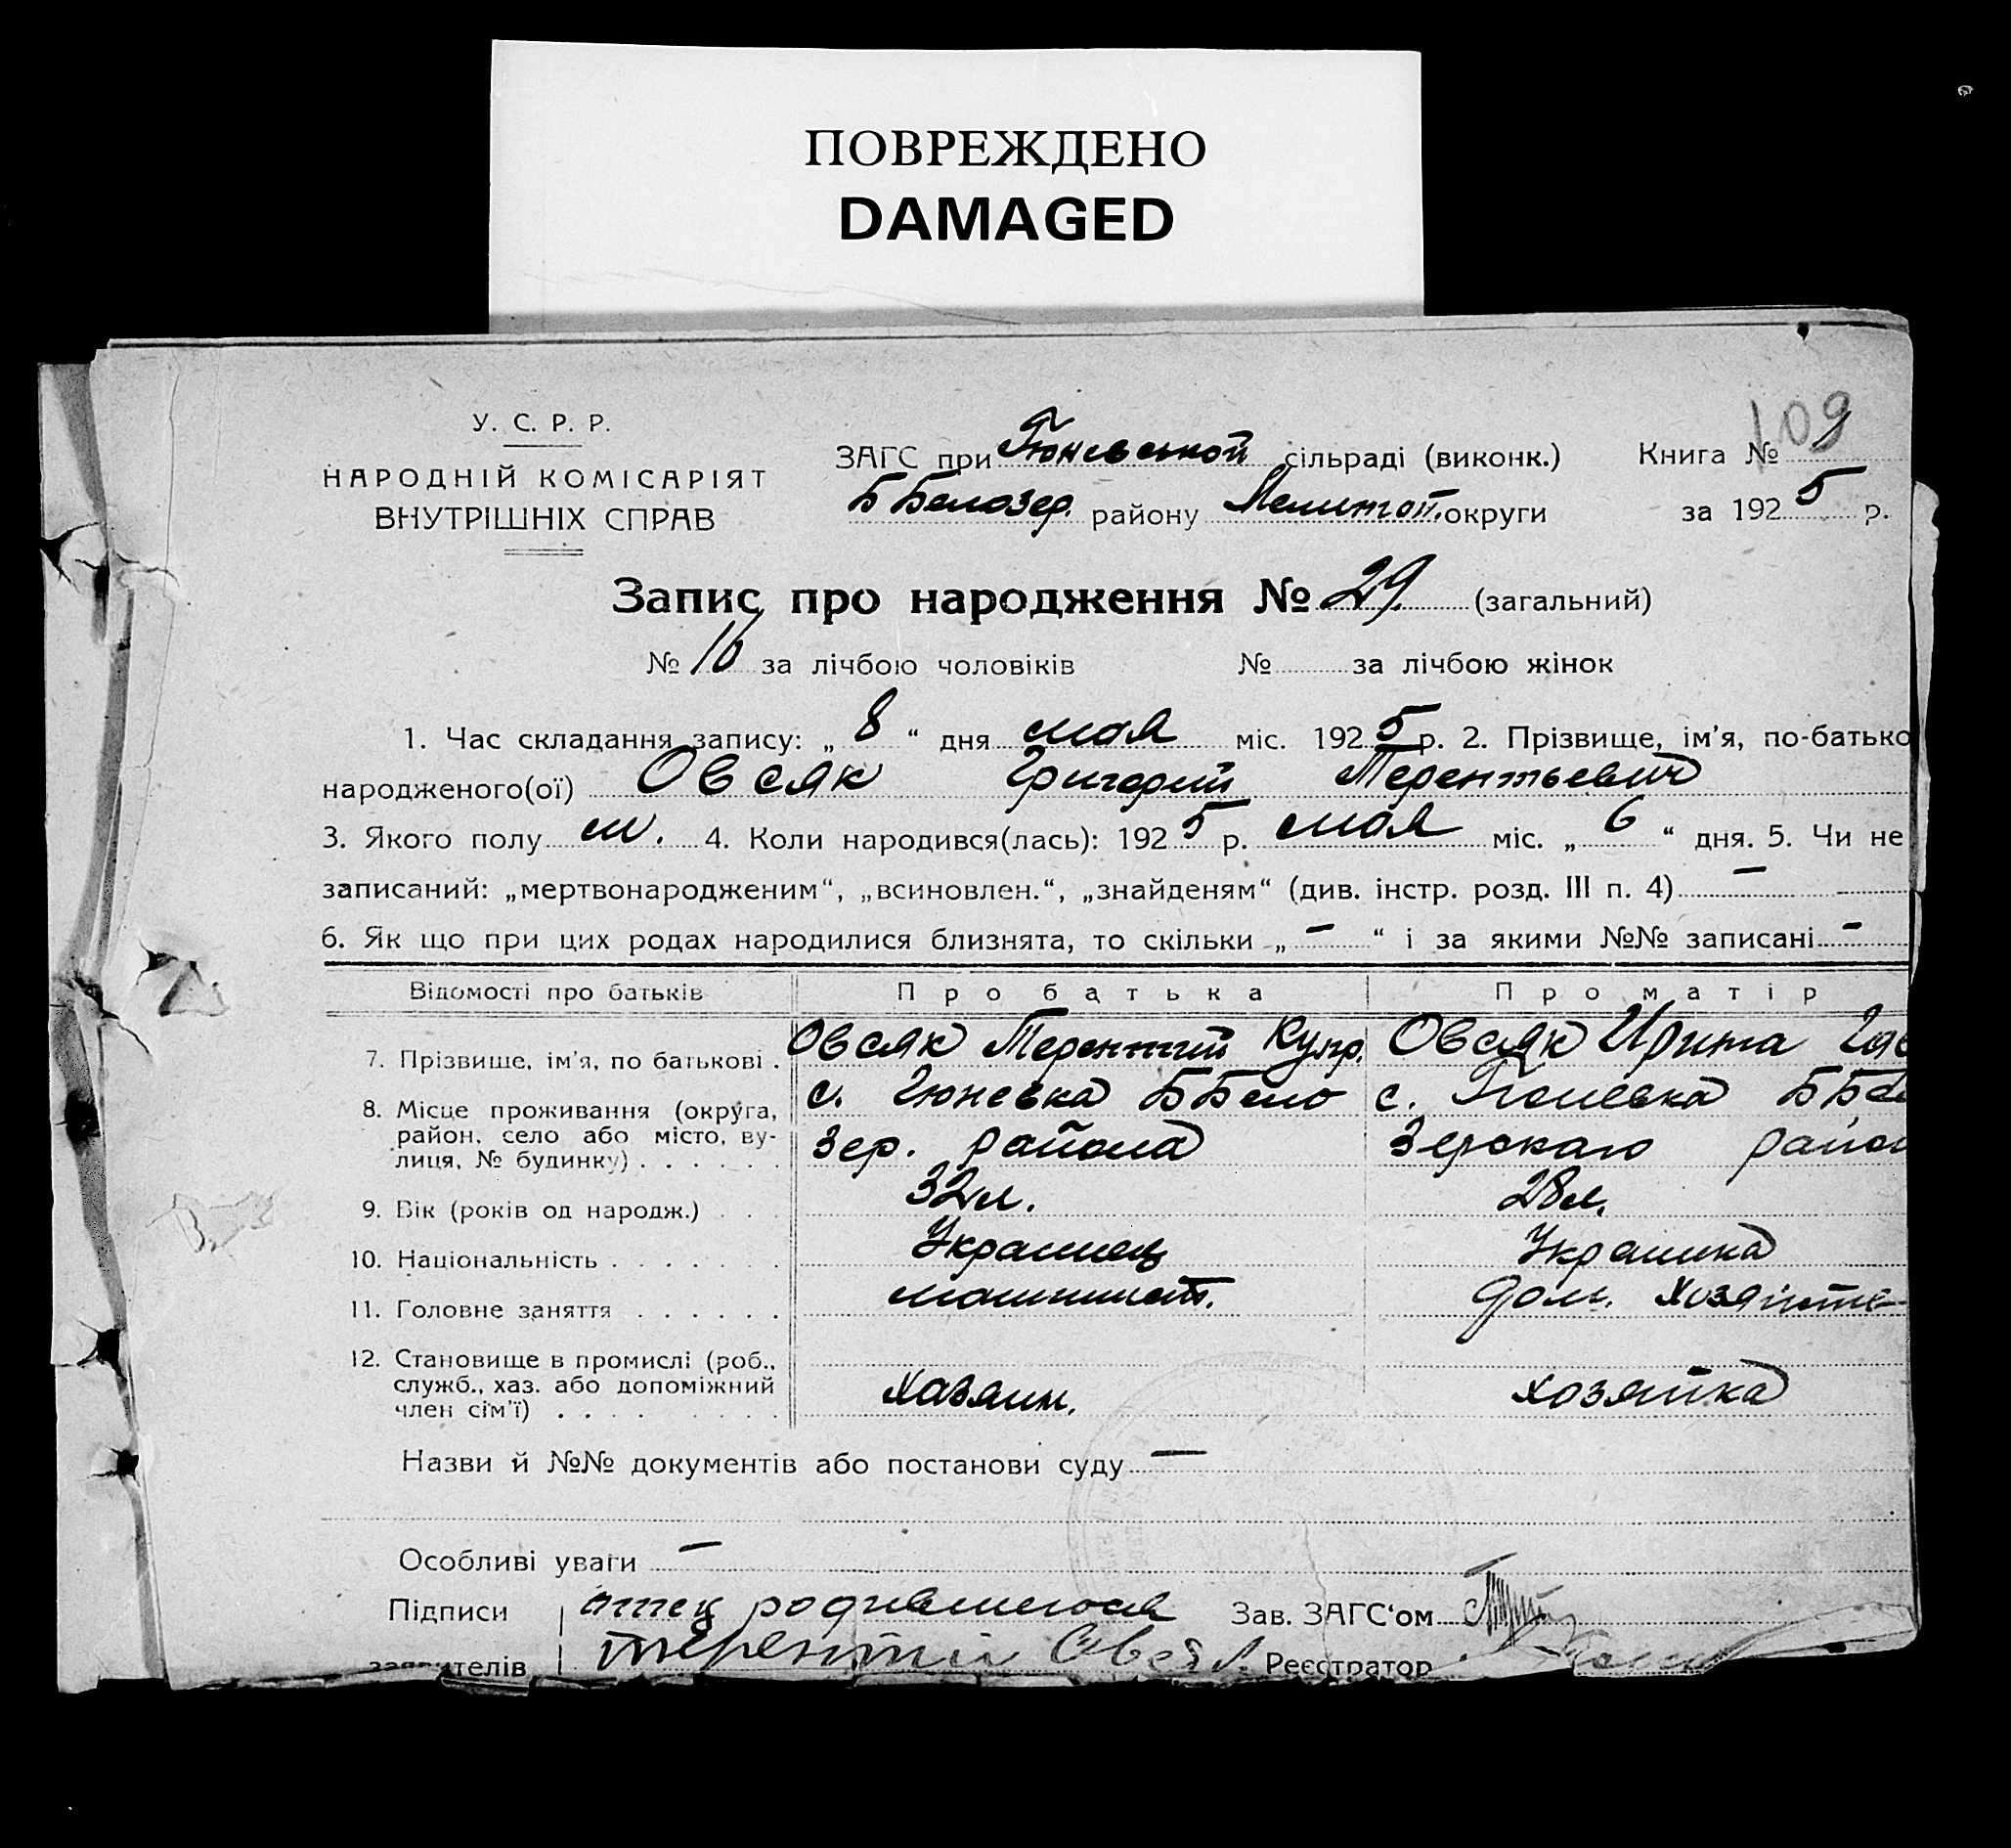 ПОВРЕЖДЕНО
DAMAGED
109
У. С. Р. Р.
НАРОДНІЙ КОМІСАРІЯТ
ВНУТРІШНІХ СПРАВ
ЗАГС при Гюневськой сільраді (виконк.) Книга №
ББелозер. району Мелитоп. округи за 1925 р.
Запис про народження № 29 (загальний)
№ 16 за лічбою чоловіків № за лічбою жінок
1. Час складання запису: „ 8 “ дня мая міс. 1925 р. 2. Прізвище, ім'я, по-батько
народженого(ої) Овсяк Григорий Терентьевич
3. Якого полу м. 4. Коли народився(лась): 1925 р. мая міс. „ 6 “ дня. 5. Чи не
записаний: „мертвонародженим“, „всиновлен.“, „знайденям“ (див. інстр. розд. III п. 4) —
6. Як що при цих родах народилися близнята, то скільки „ — “ і за якими №№ записані —
Відомості про батьків Про батька Про матір
7. Прізвище, ім'я, по батькові . Овсяк Терентий Купр. Овсяк Ирина
8. Місце проживання (округа, с. Гюневка ББело с. Гюневка ББел
район, село або місто, ву- зер. района зерскаго район
лиця, № будинку) . . . . . .
9. Вік (років од народж.) . . . 32 л. 28 л.
10. Національність . . . . . . . Украинец Украинка
11. Головне заняття . . . . . . машинист. дом. хозяйств
12. Становище в промислі (роб.,
служб., хаз. або допоміжний Хазяин. хозяйка
член сім'ї) . . . . . . . .
Назви й №№ документів або постанови суду —
Особливі уваги —
Підписи отец родившегося Зав. ЗАГС'ом
заявителів терентий Овсяк Реєстратор